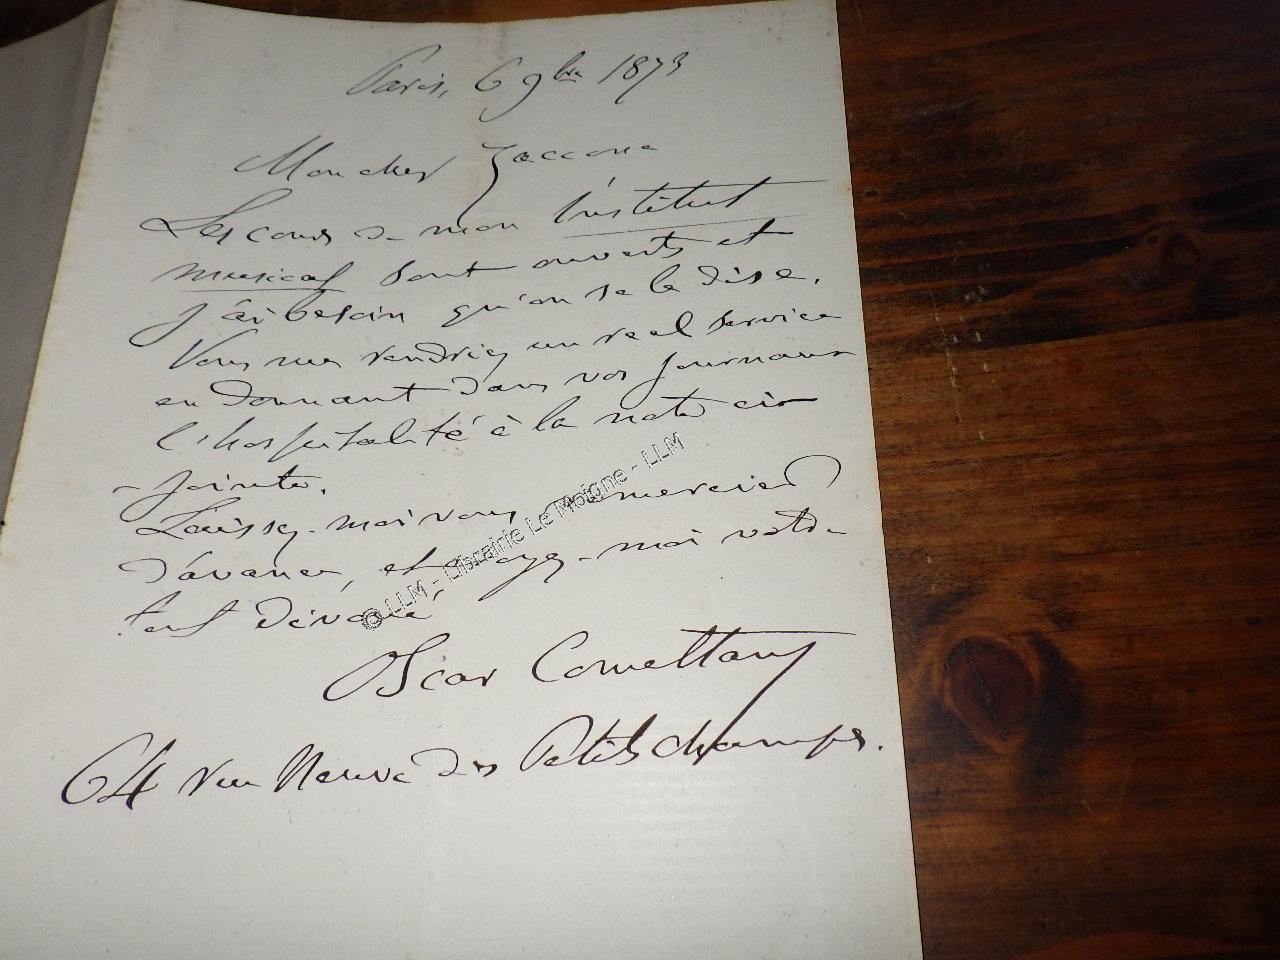 Paris, 6 9bre 1873
Mon cher Zaccone
Les cours de mon Institut
musical sont ouverts et
j'ai besoin qu'on se le dise.
Vous me rendriez un real service
en donnant dans vos journaux
l'hospitalité à la note ci-
-jointe.
Laissez-moi vous en mercier
d'avance, et croyez-moi votre
tout dévoué
Oscar Comettant
64 rue Neuve des Petits champs.
© LLM - Librairie Le Moigne - LLM